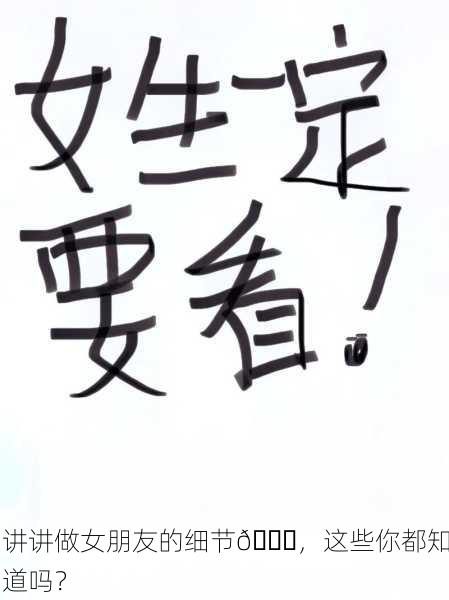 女生一定
要看！
讲讲做女朋友的细节ð，这些你都知
道吗？